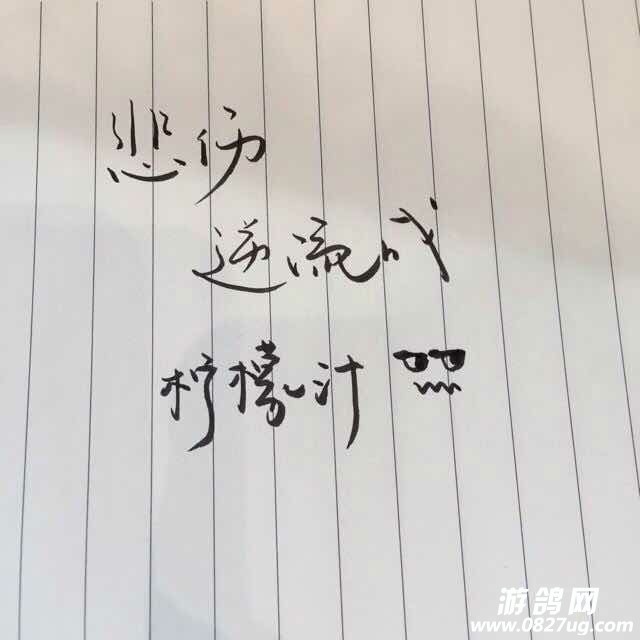 悲伤
逆流成
柠檬汁
游鸽网
www.0827ug.com